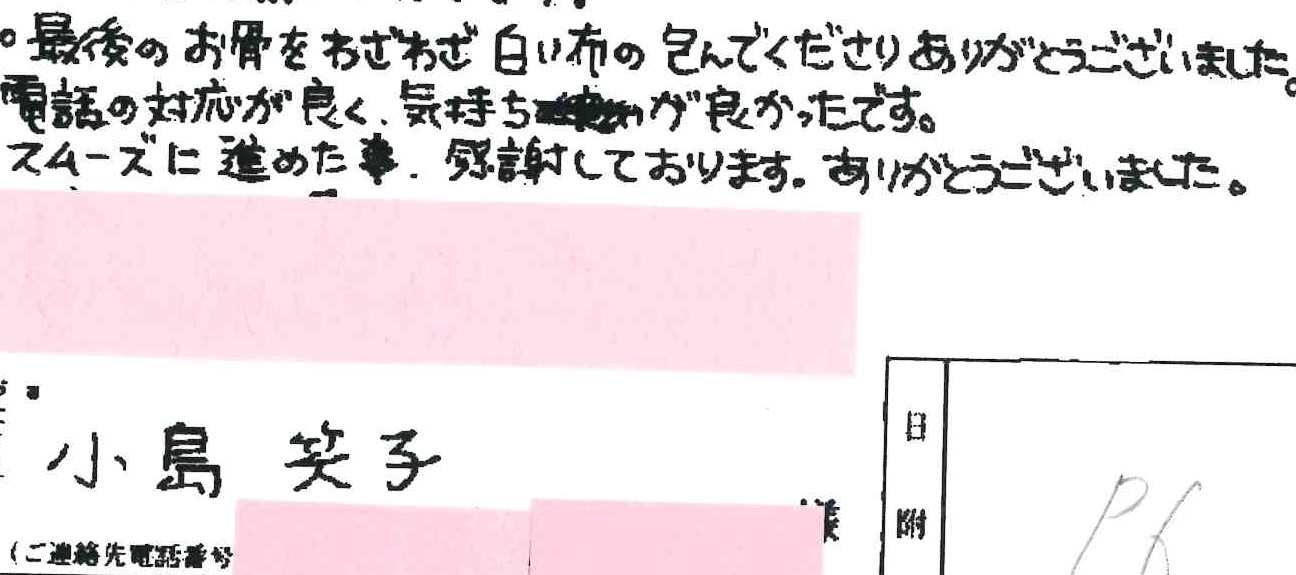 。最後のお骨をわざわざ白い布の包んでくださりありがとうございました。
電話の対応が良く、気持ちが良かったです。
スムーズに進めた事、感謝しております。ありがとうございました。
小島 笑子
様
(ご連絡先電話番号
日附